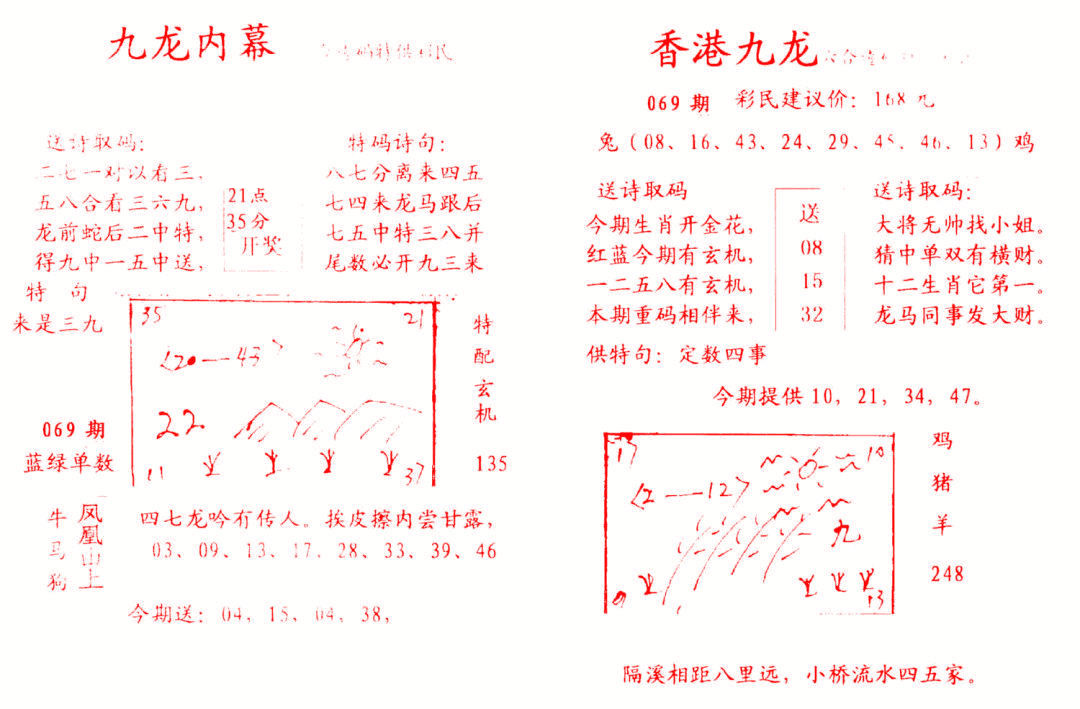 九龙内幕
送诗取码：
二七一对以看三，
五八合看三六九，
龙前蛇后二中特，
得九中一五中送，
21点
35分
开奖
特码诗句：
八七分离来四五
七四来龙马跟后
七五中特三八并
尾数必开九三来
特 句
来是三九
069 期
蓝绿单数
35
21
20—43
22
11
37
特配玄机
135
牛马狗
凤凰山上
四七龙吟有传人。挨皮擦内尝甘露，
03、09、13、17、28、33、39、46
今期送：04，15，04，38，
香港九龙
069 期 彩民建议价：168 元
兔（08、16、43、24、29、45、46、13）鸡
送诗取码
今期生肖开金花，
红蓝今期有玄机，
一二五八有玄机，
本期重码相伴来，
送
08
15
32
送诗取码：
大将无帅找小姐。
猜中单双有横财。
十二生肖它第一。
龙马同事发大财。
供特句：定数四事
今期提供 10，21，34，47。
10
2—12
九
9
13
鸡
猪
羊
248
隔溪相距八里远，小桥流水四五家。